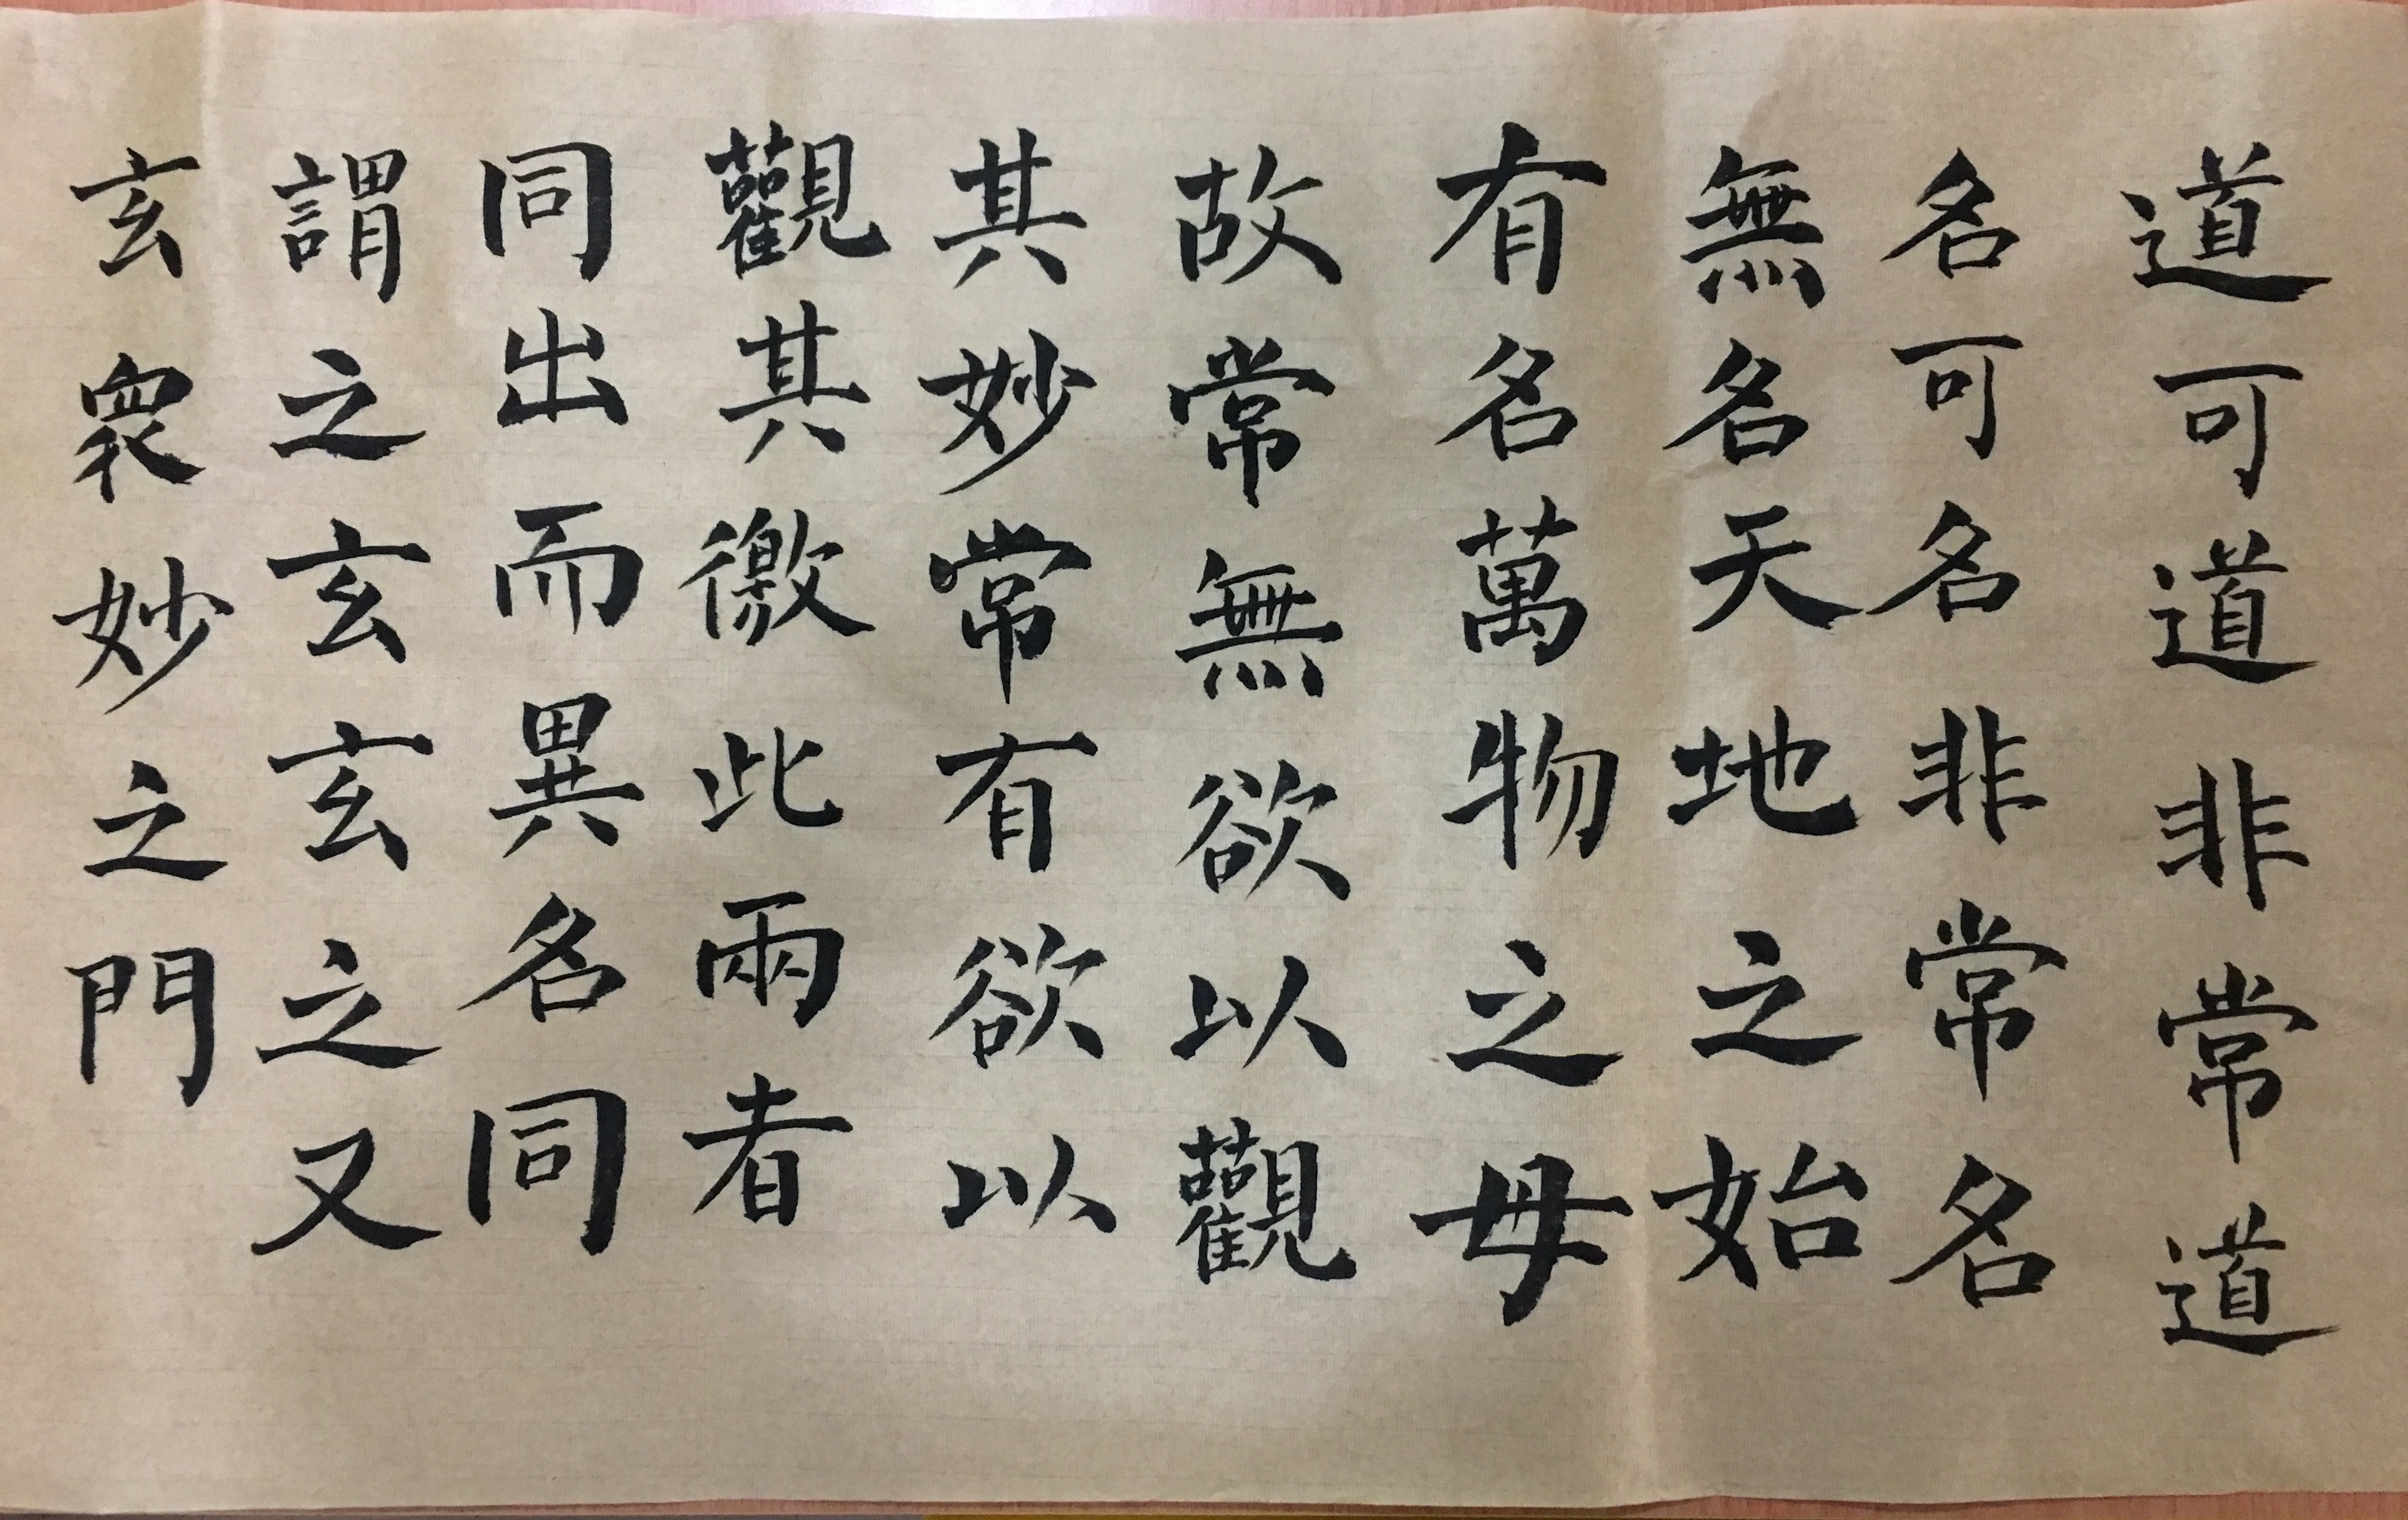 道可道非常道
名可名非常名
無名天地之始
有名萬物之母
故常無欲以觀
其妙常有欲以
觀其徼此兩者
同出而異名同
謂之玄玄之又
玄衆妙之門